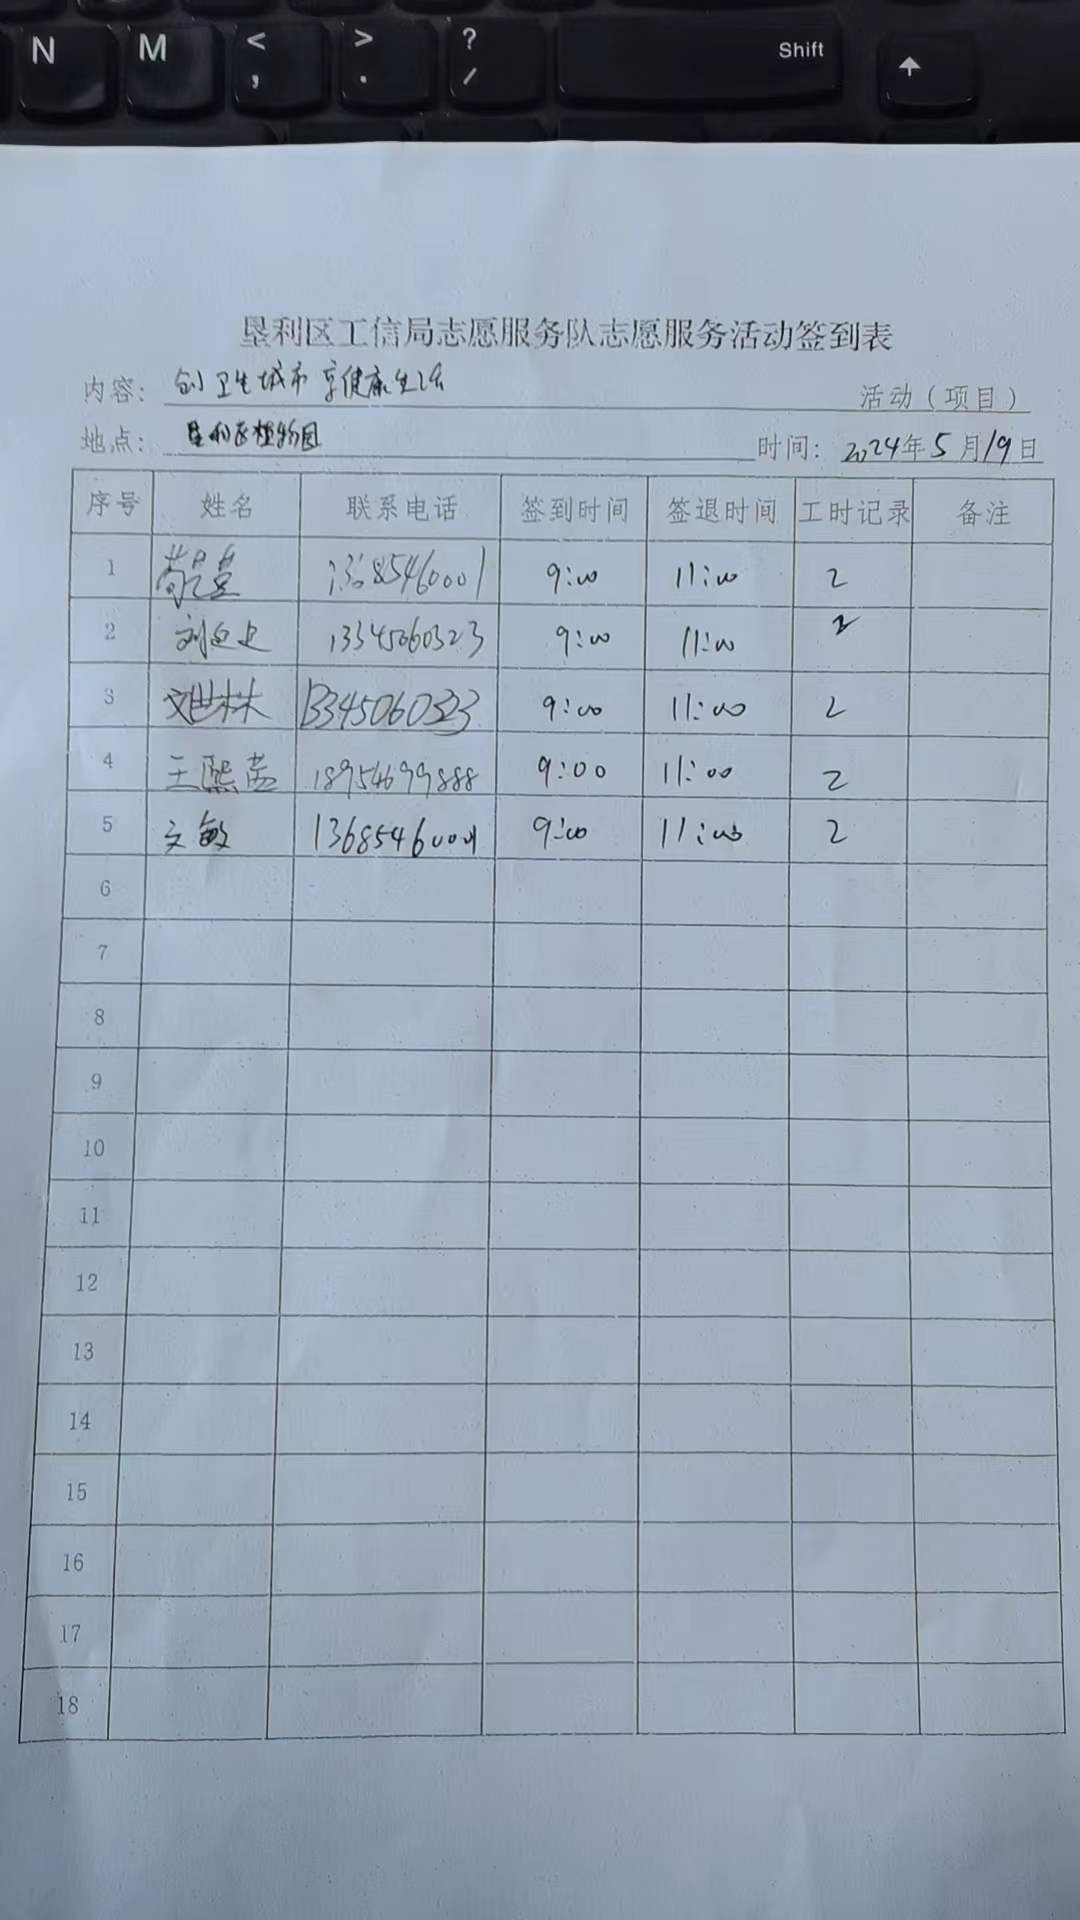 N M < , > . ? / Shift
垦利区工信局志愿服务队志愿服务活动签到表
内容: 创卫生城市 享健康生活 活动(项目)
地点: 垦利区植物园 时间: 2024年5月19日
序号 姓名 联系电话 签到时间 签退时间 工时记录 备注
1 9:00 11:00 2
2 13345060323 9:00 11:00 2
3 13345060323 9:00 11:00 2
4 王熙 18954699888 9:00 11:00 2
5 文敏 13685460001 9:00 11:00 2
6
7
8
9
10
11
12
13
14
15
16
17
18